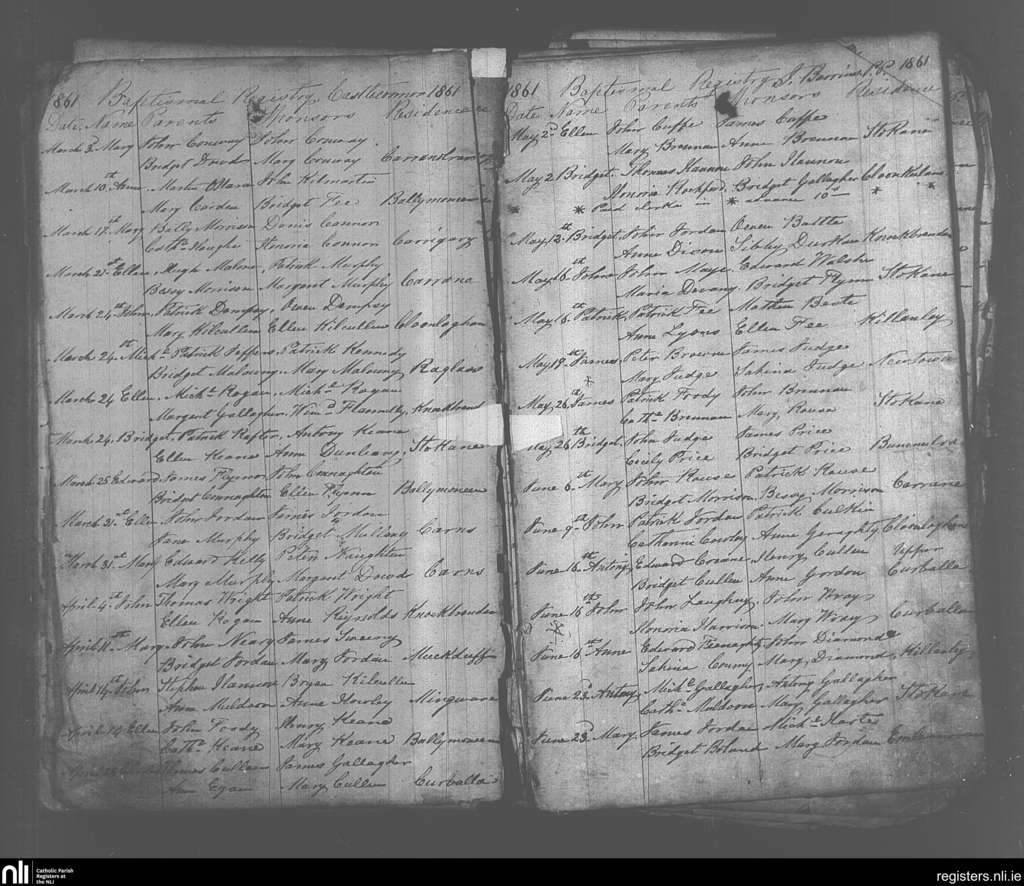 1861 Baptismal Registry Castleconnor 1861
Date Name Parents Sponsors Residence
March 3 Mary John Conway John Conway
Bridget Dowd Mary Conway Carranstrawn
March 10th Anne Martin O'Hara John Kilmartin
Mary Carden Bridget Fee Ballymoneen
March 17th Mary Batty Morrison Denis Connor
Cath. Hughs Honoria Connor Carrigary
March 21st Ellen Hugh Malone Patrick Murphy
Bessy Morrison Margaret Murphy Carrane
March 24th John Patrick Dempsy Owen Dempsy
Mary Kilcullen Ellen Kilcullen Cloonlaghan
March 24th Michl Patrick Jeffers Patrick Kennedy
Bridget Maloney Mary Maloney Raglass
March 24 Ellen Michl Rogan Michl Rogan
Margaret Gallagher Flannelly
March 24 Bridget Patrick Rafter Antony Keane
Ellen Keane Anne Dunleavy Stokane
March 25 Edward James Flynn John Connaghton
Bridget Connaghton Ellen Flynn Ballymoneen
March 31st Ellen John Jordan James Jordan
Jane Murphy Bridget Mullany Carns
March 31st Mary Edward Kelly Peter Kneighton
Mary Murphy Margaret Dowd Carns
April 4th John Thomas Wright Patrick Wright
Ellen Rogan Anne Reynolds Knockbranden
April 11th Mary John Neary James Sweeny
Bridget Jordan Mary Jordan Muckduff
April 14th John Stephen Hannon Bryan Kilcullen
Anne Muldoon Anne Howley Mingware
April 14 Ellen John Foody Henry Keane
Cath. Keane Mary Keane Ballymoneen
April Thomas Cullen James Gallagher
Anne Egan Mary Cullen Curballa
1861 Baptismal Registry J. Barrins P.P. 1861
Date Name Parents Sponsors Residence
May 2d Ellen John Cuffe James Cuffe
Mary Brennan Anne Brennan Stokane
May 2 Bridget Thomas Hannon John Hannon
Honoria Rochford Bridget Gallagher Cloonkelane
* * Paid clerke * advance 10s * *
May 12th Bridget John Jordan Owen Battle
Anne Dixon Sibby Durkan Knockbranden
May 16 John John Maye Edward Welsh
Maria Devany Bridget Flynn Stokane
May 16th Patrick Patrick Fee Mathew Beate
Anne Lyons Ellen Fee Killanley
May 19th James Peter Browne James Judge
Mary Judge Sabina Judge Newtown
May 26th James Patrick Foody John Brennan
Cath. Brennan Mary Rouse Stokane
May 26th Bridget John Judge James Price
Cecily Price Bridget Price
June 6th Mary John Rouse Patrick Rouse
Bridget Morrison Bessy Morrison Carrane
June 9th John Patrick Jordan Patrick Culkin
Catherine Cawley Anne Geraghty Cloonlaghan
June 16th Antony Edward Creane Henry Cullen Upper
Bridget Cullen Anne Gordon Curballa
June 16th John John Laughny John Wray
Honoria Harrison Mary Wray Curballa
June 16th Anne Edward Feenaghty John Diamond
Sabina Conny Mary Diamond Killanly
June 23d Antony Michl Gallagher Antony Gallagher
Cath. Muldoon Mary Gallagher Stokane
June 23d Mary James Jordan Michl Harte
Bridget Boland Mary Jordan
nli
Catholic Parish
Registers at
the NLI
registers.nli.ie